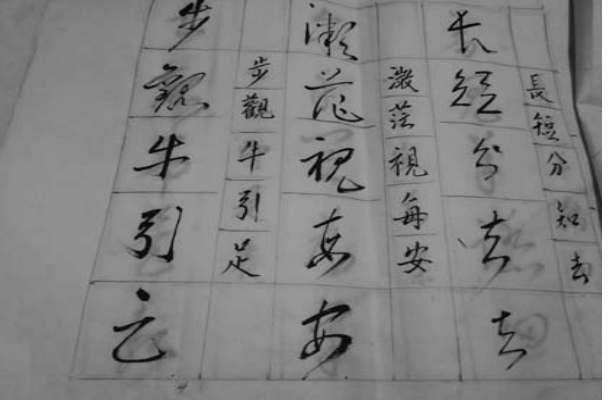 長短分知去
長短分知去
激茫視每安
激茫視每安
步觀牛引足
步觀牛引足